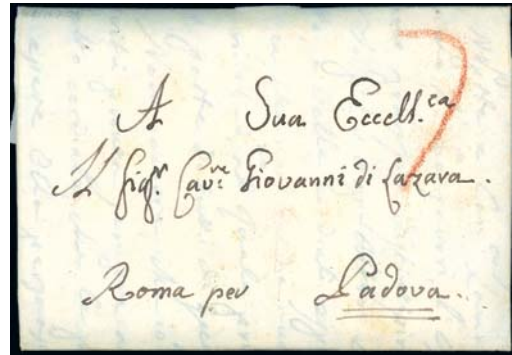 A Sua Eccell.ca
Il Sig.r Cav.re Giovanni di Lazara.
Roma per Padova.
7